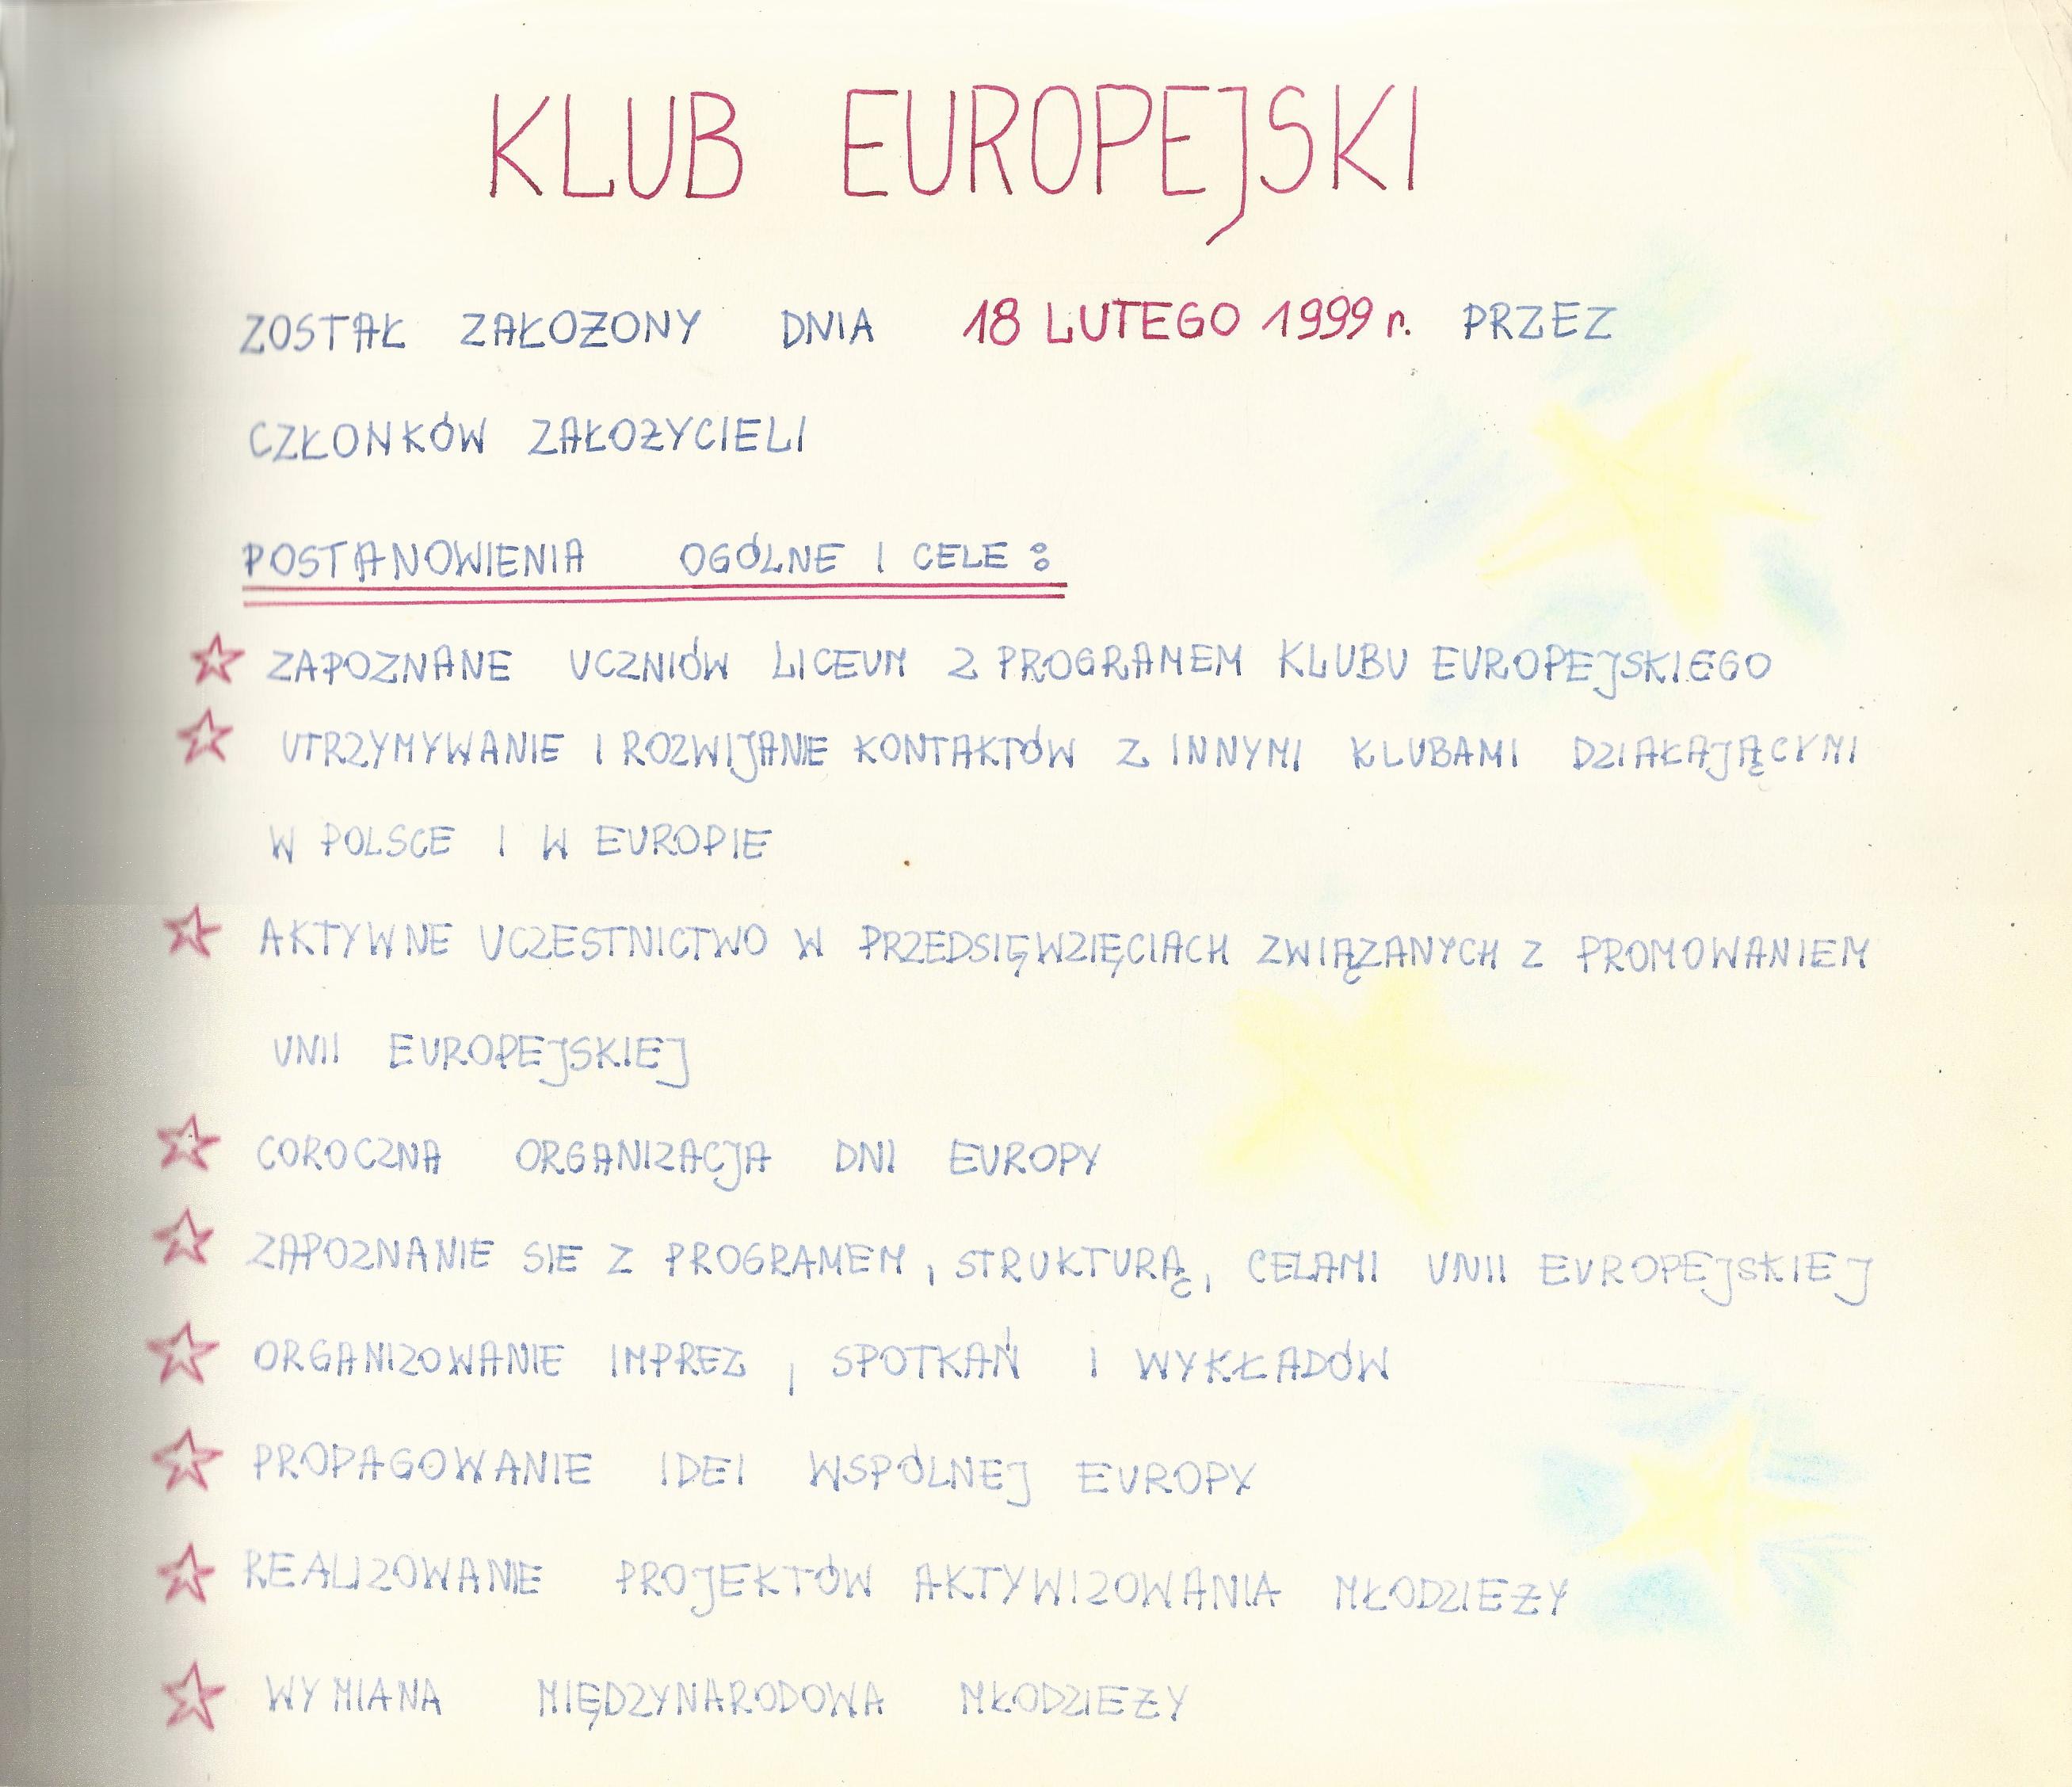 KLUB EUROPEJSKI
ZOSTAŁ ZAŁOŻONY DNIA 18 LUTEGO 1999 r. PRZEZ
CZŁONKÓW ZAŁOŻYCIELI
POSTANOWIENIA OGÓLNE I CELE:
ZAPOZNANE UCZNIÓW LICEUM Z PROGRAMEM KLUBU EUROPEJSKIEGO
UTRZYMYWANIE I ROZWIJANIE KONTAKTÓW Z INNYMI KLUBAMI DZIAŁAJĄCYMI
W POLSCE I W EUROPIE
AKTYWNE UCZESTNICTWO W PRZEDSIĘWZIĘCIACH ZWIĄZANYCH Z PROMOWANIEM
UNII EUROPEJSKIEJ
COROCZNA ORGANIZACJA DNI EUROPY
ZAPOZNANIE SIE Z PROGRAMEM, STRUKTURĄ, CELAMI UNII EUROPEJSKIEJ
ORGANIZOWANIE IMPREZ, SPOTKAŃ I WYKŁADÓW
PROPAGOWANIE IDEI WSPÓLNEJ EUROPY
REALIZOWANIE PROJEKTÓW AKTYWIZOWANIA MŁODZIEŻY
WYMIANA MIĘDZYNARODOWA MŁODZIEŻY